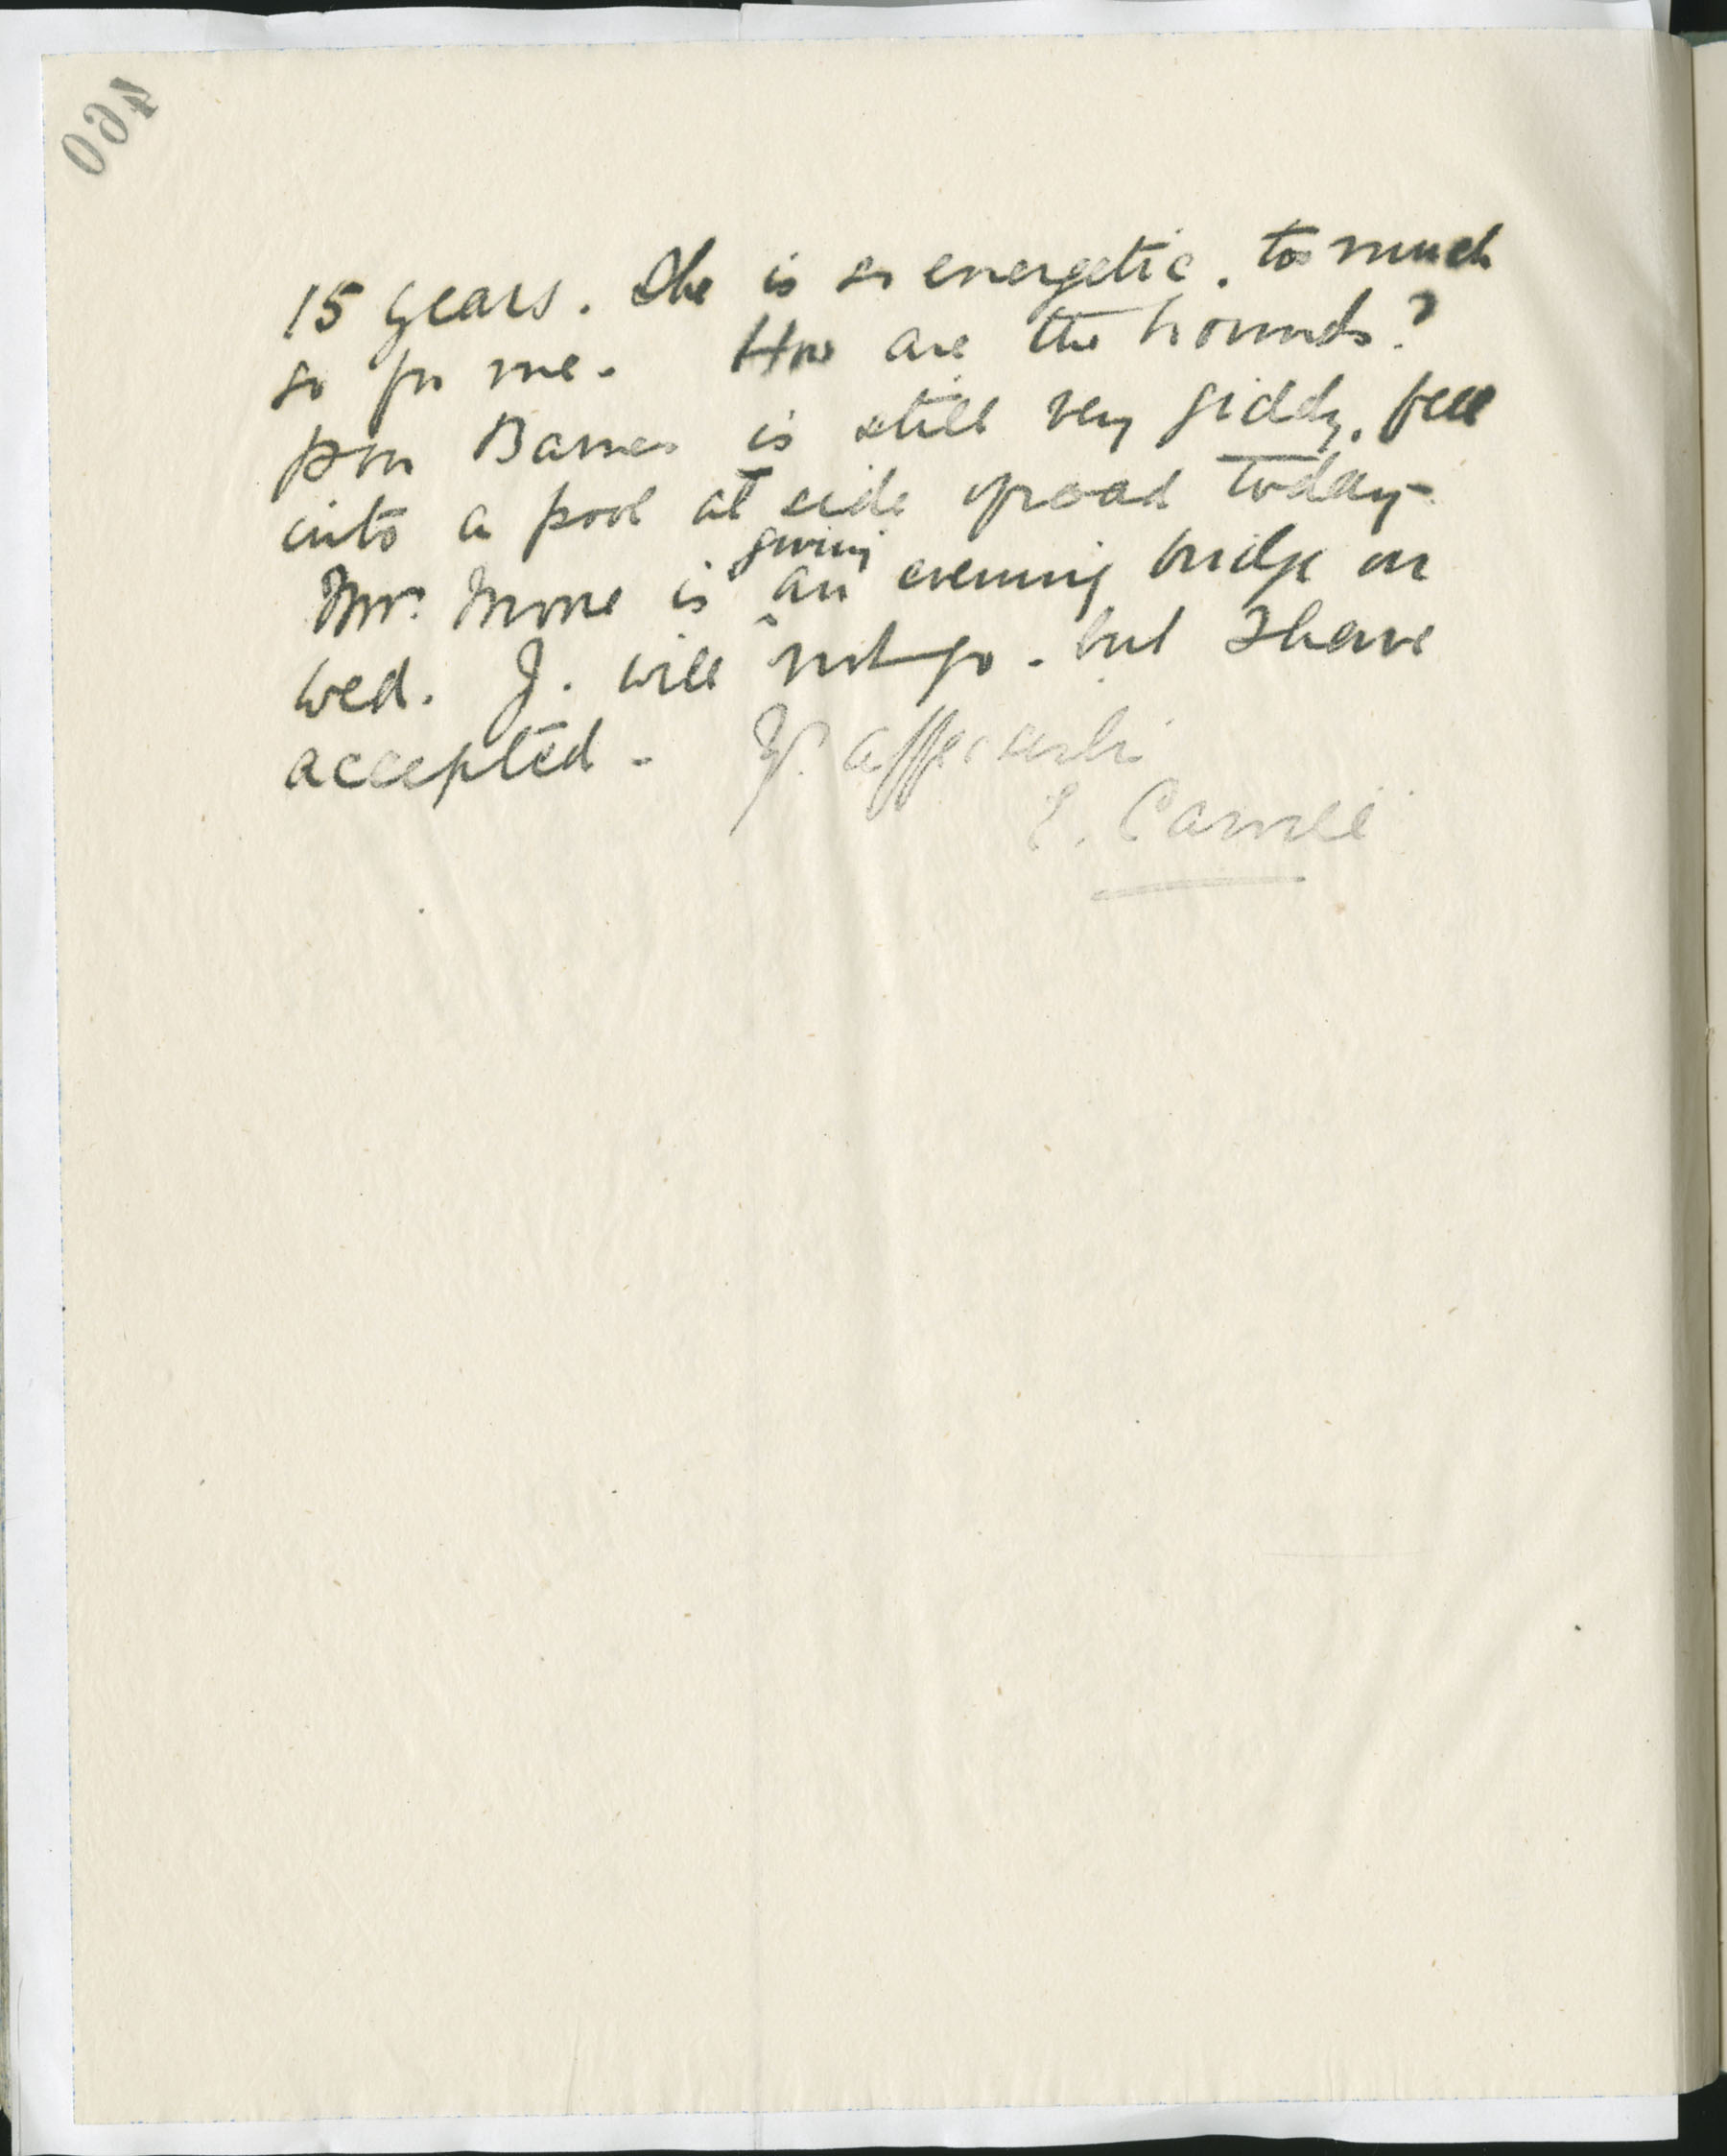 460
15 years. She is so energetic. too much
so for me. How are the hounds?
poor Barnes is still very giddy, fell
into a pool at side of road today.
giving
Mrs. Morse is an evening bridge on
wed. J. will not go - but I have
accepted. Yr. affectionate
E.